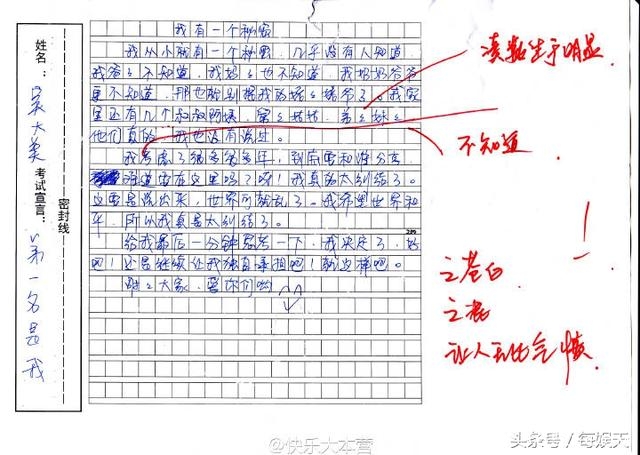 姓名：吴大美
考试宣言：第一名是我
密封线
我有一个秘密
我从小就有一个秘密，几乎没有人知道，
我爸爸不知道，我妈妈也不知道，我奶奶爷爷
更不知道，那也就别提我的姥姥姥爷了。我家
里还有几个叔叔阿姨，哥哥姐姐，弟弟妹妹
他们真的，我也没有说过。
我考虑了很多多年，到底要和谁分享，
难道要在这里吗？啊！我真的太纠结了。
这要是说出来，世界可就乱了，我希望世界和
平，所以我真是太纠结了。
给我最后一分钟思考一下，我决定了，好
吧！还是继续让我独自承担吧！就这样吧。
谢谢大家，爱你们哟
^^
凑数过于明显
不知道
！
之苍白
之
让人无比气愤
@快乐大本营
头条号/每娱天